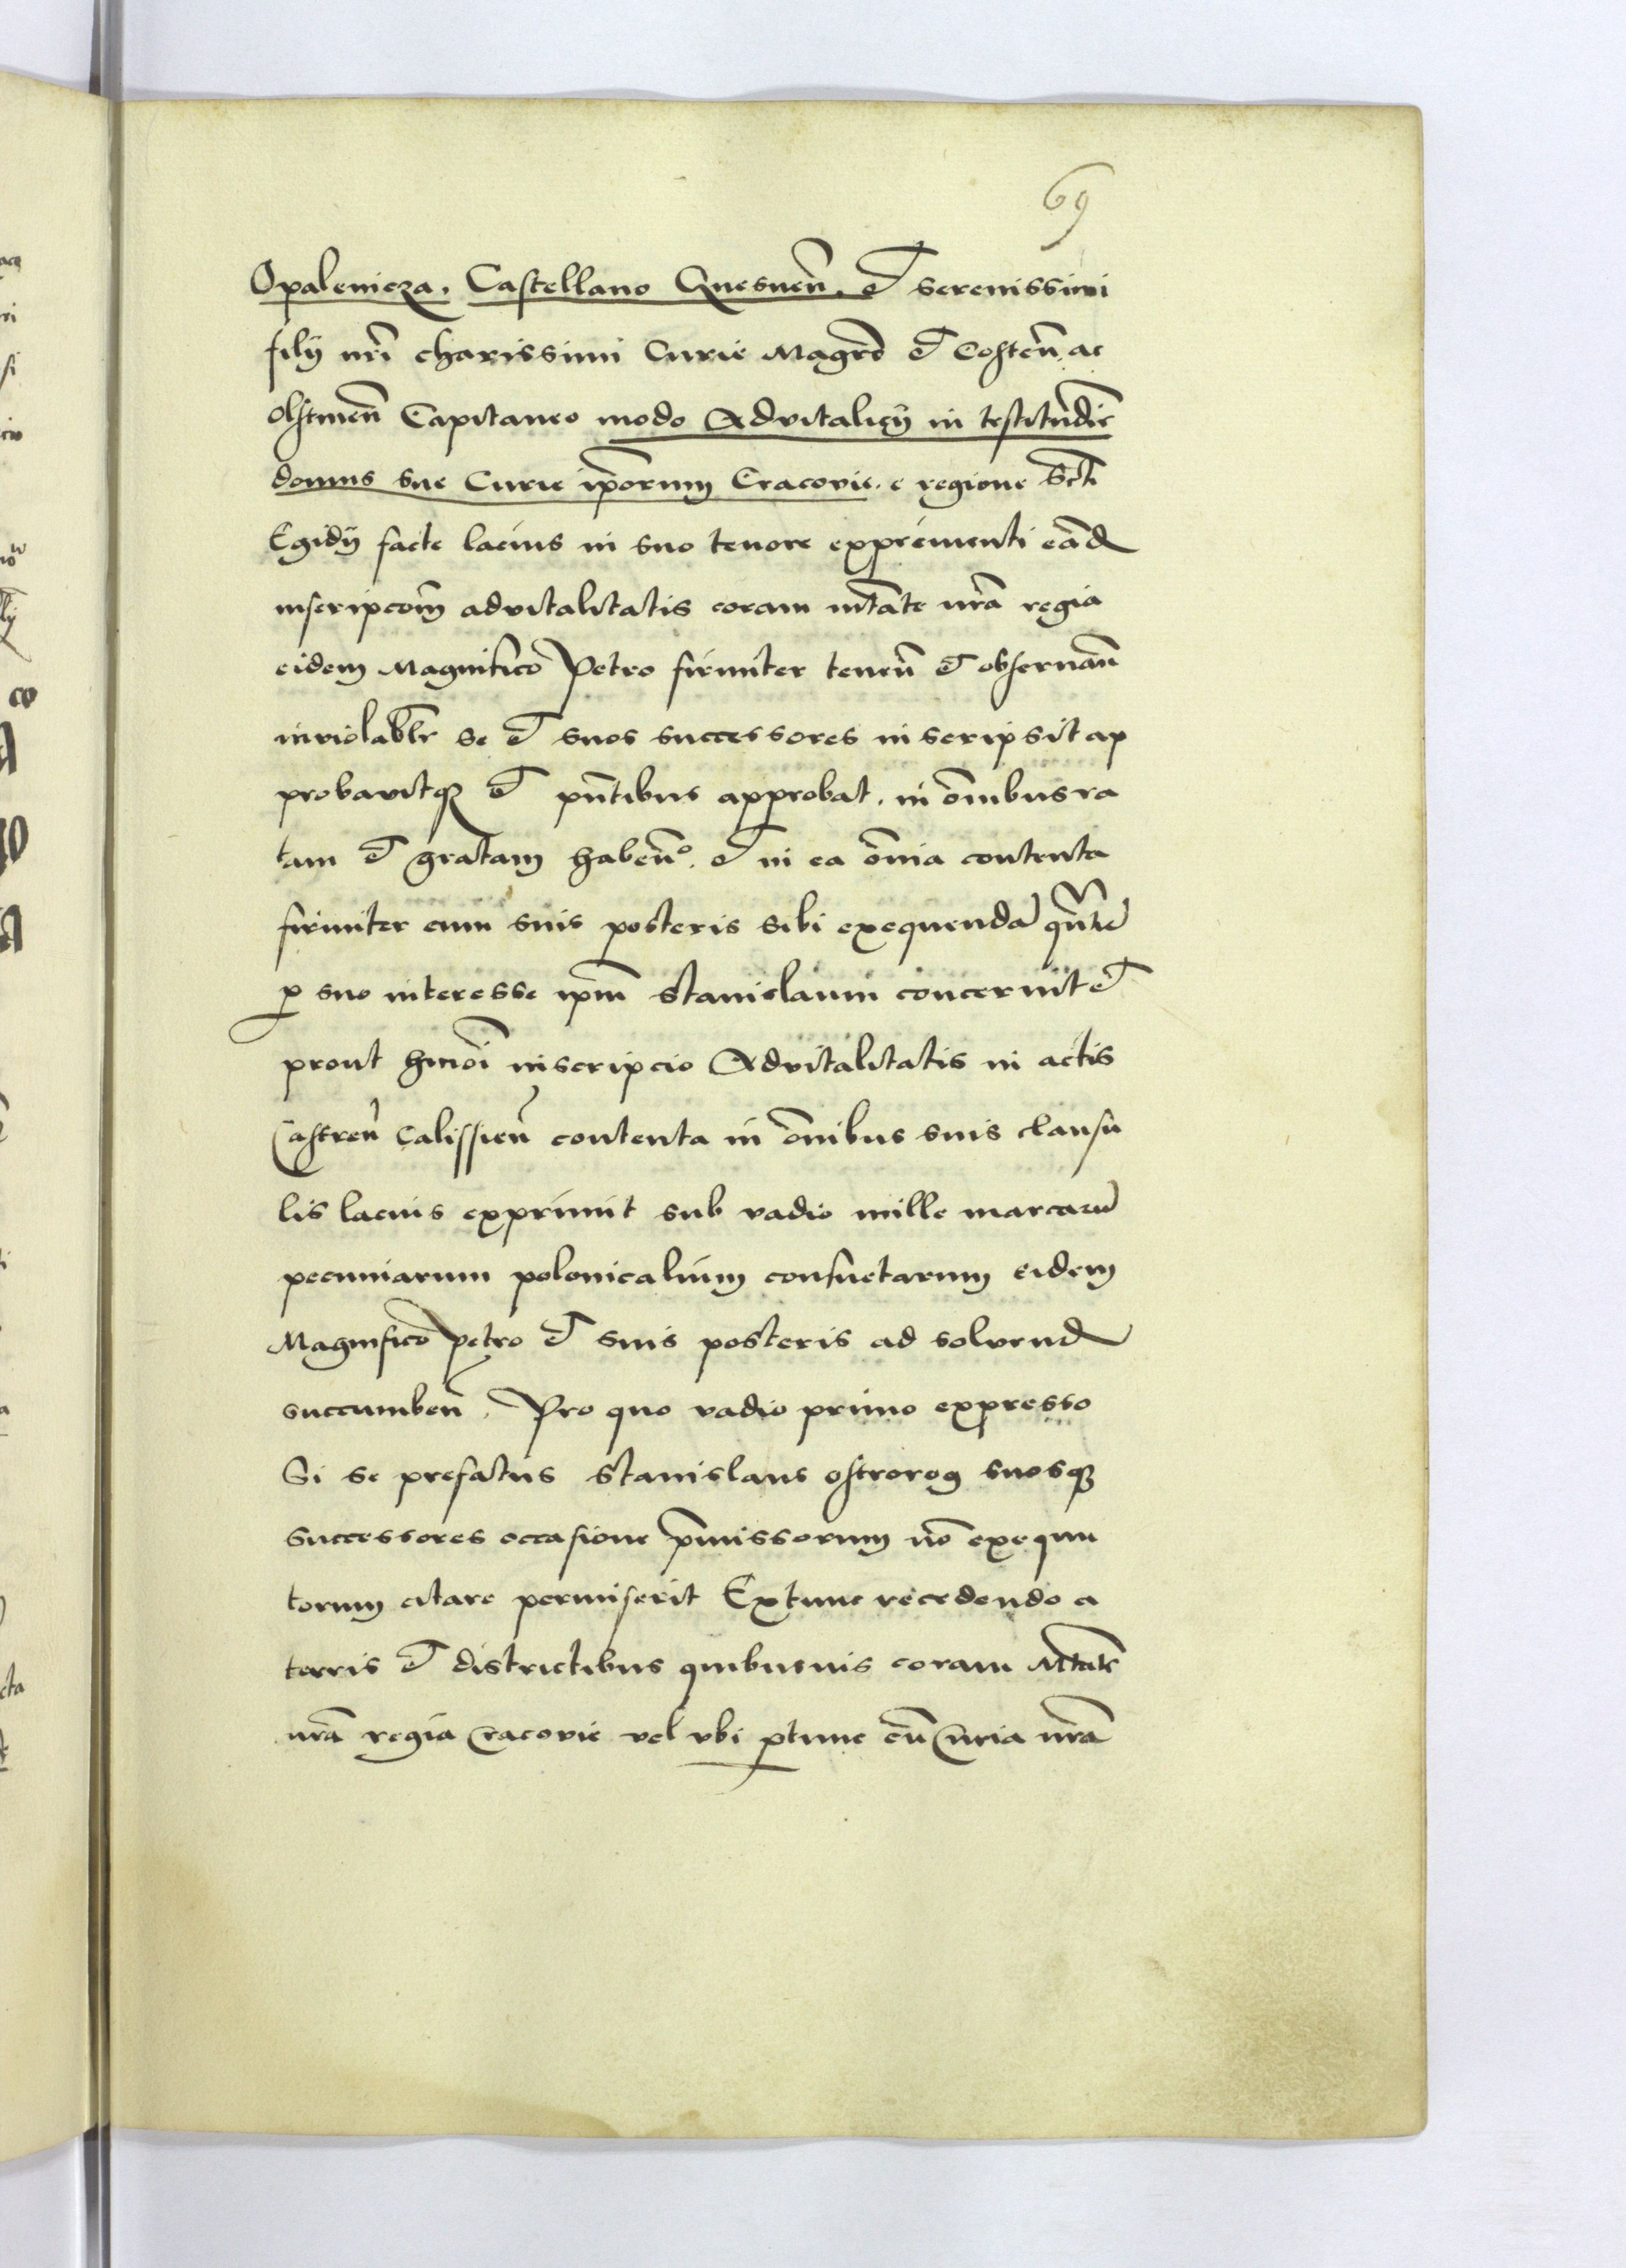 69
Opalenicza. Castellano Gnesneñ. et serenissimi
filij nr̃i charissimi Curie Magr̃o et Costeñ. ac
olstineñ Capitaneo modo Advitalicij in testitudĩe
domus sue Curie ip̃orum Cracovie. e regione Sc̃ti
Egidij facte lacius in suo tenore exprementi eãd
inscripcom̃ advitalitatis coram mtãte nr̃a regia
eidem Magnifico Petro firmiter teneñ et obseruañ
inviolabl̃r se et suos successores inscripsit ap
probavitqꝫ et pñtibus approbat. in om̃ibus ra
tam et gratam habeñ. et in ea om̃ia contenta
firmiter cum suis posteris sibi exequenda qñtũ
ꝑ suo interesse ip̃m Stanislaum concernit et
prout hm̃oi inscripcio Advitalitatis in actis
Castreñ Calissieñ contenta in om̃ibus suis clausu
lis lacius exprimit sub vadio mille marcarũ
pecuniarum polonicalium consuetarum eidem
Magnifico Petro et suis posteris ad solvend
succumbeñ. Pro quo vadio primo expresso
Si se prefatus Stanislaus ostrorog suosqꝫ
Successores occasione p̃missorum nõ exequu
torum citare permiserit Extunc recedendo a
terris et districtibus quibusuis coram Mtãte
nr̃a regia Cracovie vel vbi ꝑtunc cũ Curia nr̃a